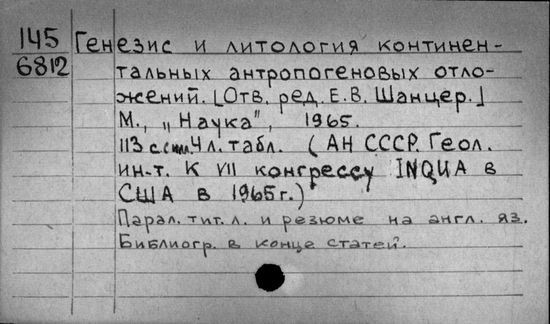 145 Генезис и литология континен-
6812 тальных антропогеновых отло-
жений. [Отв. ред. Е.В. Шанцер.]
М., „Наука", 1965.
113 с. 4 л. табл. (АН СССР. Геол.
ин-т. К VII конгрессу INQUA в
США в 1965 г.)
Парал. тит. л. и резюме на англ. яз.
Библиогр. в конце статей.